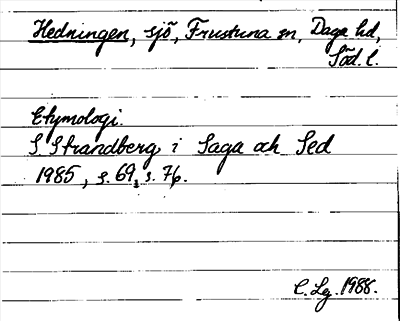 Hedningen, sjö, Frustuna sn, Daga hd,
Söd. l.
Etymologi.
S Strandberg i Saga och Sed
1985, s. 69, s. 76.
C. Lg. 1988.